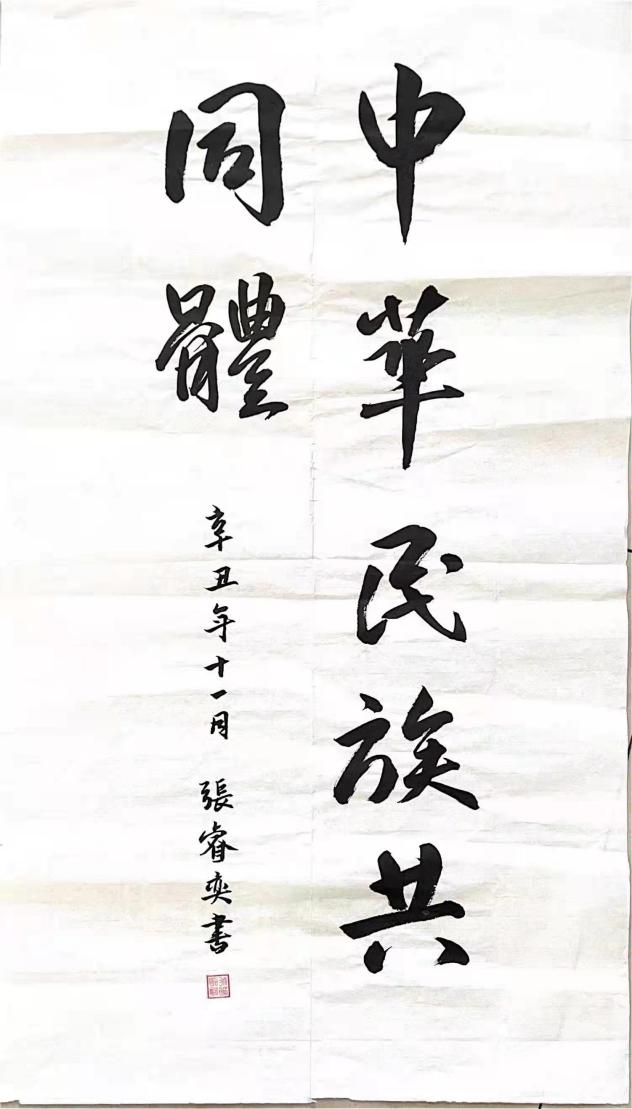 中華民族共
同體
辛丑年十一月 張睿奕書